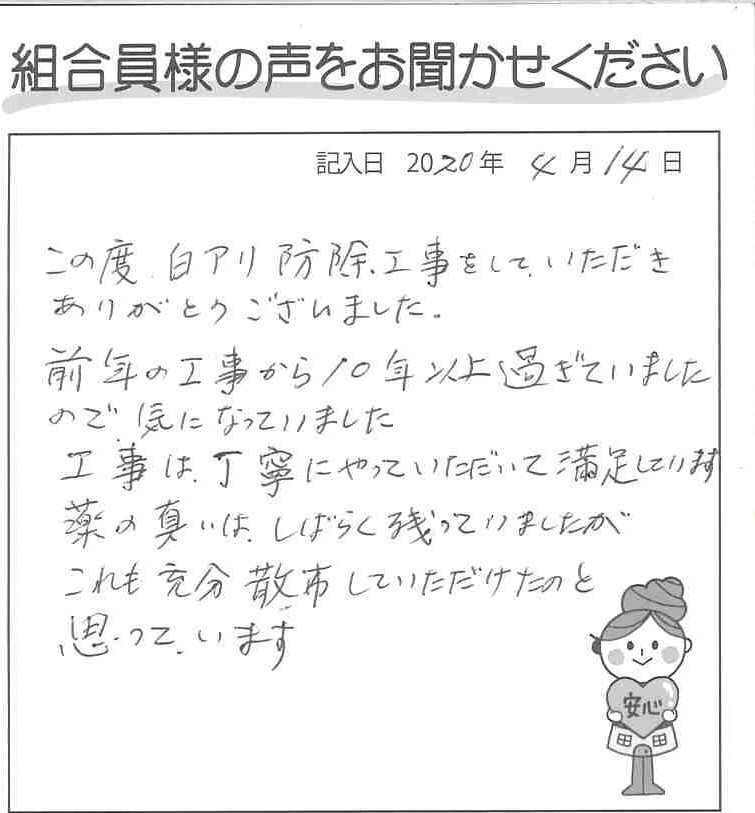 組合員様の声をお聞かせください
記入日 2020年 4月14日
この度、白アリ防除、工事をして、いただき
ありがとうございました。
前年の工事から10年以上過ぎていました
ので気になっていました
工事は、丁寧にやっていただいて満足しています
薬の臭いは、しばらく残っていましたが
これも充分散布していただけたのと
思って、います
安心